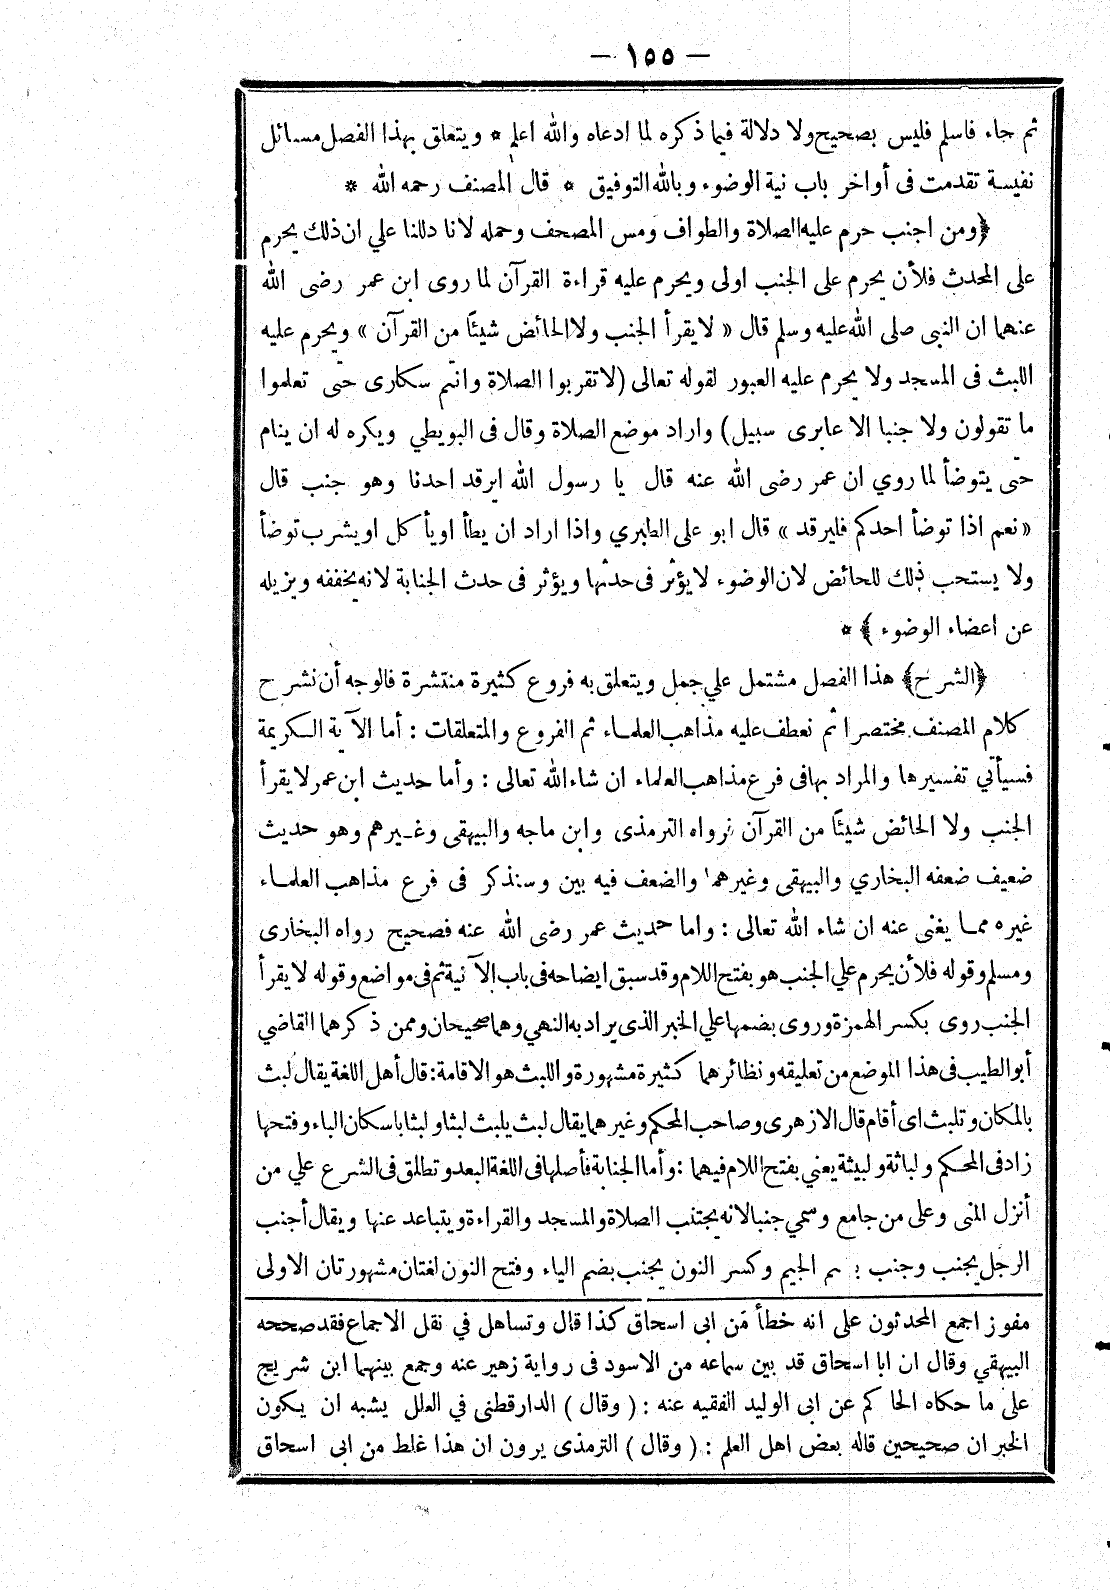 — ١٥٥ —
ثم جاء فاسلم فليس بصحيح ولا دلالة فيما ذكره لما ادعاه والله اعلم * ويتعلق بهذا الفصل مسائل
نفيسة تقدمت فى أواخر باب نية الوضوء وبالله التوفيق * قال المصنف رحمه الله *
﴿ومن اجنب حرم عليه الصلاة والطواف ومس المصحف وحمله لانا دللنا علي ان ذلك يحرم
على المحدث فلأن يحرم على الجنب اولى ويحرم عليه قراءة القرآن لما روى ابن عمر رضى الله
عنهما ان النبى صلى الله عليه وسلم قال « لا يقرأ الجنب ولا الحائض شيئًا من القرآن » ويحرم عليه
اللبث فى المسجد ولا يحرم عليه العبور لقوله تعالى (لا تقربوا الصلاة وانتم سكارى حتى تعلموا
ما تقولون ولا جنبا الا عابرى سبيل) واراد موضع الصلاة وقال فى البويطي ويكره له ان ينام
حتى يتوضأ لما روي ان عمر رضى الله عنه قال يا رسول الله ايرقد احدنا وهو جنب قال
« نعم اذا توضأ احدكم فليرقد » قال ابو على الطبري واذا اراد ان يطأ اويأكل اويشرب توضأ
ولا يستحب ذلك للحائض لان الوضوء لا يؤثر فى حدثها ويؤثر فى حدث الجنابة لانه يخففه ويزيله
عن اعضاء الوضوء ﴾ *
﴿الشرح﴾ هذا الفصل مشتمل علي جمل ويتعلق به فروع كثيرة منتشرة فالوجه أن نشرح
كلام المصنف مختصرا ثم نعطف عليه مذاهب العلماء ثم الفروع والمتعلقات : أما الآية الكريمة
فسيأتي تفسيرها والمراد بها فى فرع مذاهب العلماء ان شاء الله تعالى : وأما حديث ابن عمر لا يقرأ
الجنب ولا الحائض شيئًا من القرآن فرواه الترمذى وابن ماجه والبيهقى وغيرهم وهو حديث
ضعيف ضعفه البخاري والبيهقى وغيرهما والضعف فيه بين وسنذكر فى فرع مذاهب العلماء
غيره مما يغنى عنه ان شاء الله تعالى : واما حديث عمر رضى الله عنه فصحيح رواه البخارى
ومسلم وقوله فلأن يحرم علي الجنب هو بفتح اللام وقد سبق ايضاحه فى باب الآنية ثم فى مواضع وقوله لا يقرأ
الجنب روى بكسر الهمزة وروى بضمها علي الخبر الذى يراد به النهي وهما صحيحان وممن ذكرهما القاضي
أبو الطيب فى هذا الموضع من تعليقه ونظائرهما كثيرة مشهورة واللبث هو الاقامة: قال أهل اللغة يقال لبث
بالمكان وتلبث اى أقام قال الازهرى وصاحب المحكم وغيرهما يقال لبث يلبث لبثا ولبثا باسكان الباء وفتحها
زاد فى المحكم ولباثة ولبيثة يعني بفتح اللام فيهما : وأما الجنابة فأصلها فى اللغة البعد وتطلق فى الشرع علي من
أنزل المنى وعلى من جامع وسمي جنبا لانه يجتنب الصلاة والمسجد والقراءة ويتباعد عنها ويقال أجنب
الرجل يجنب وجنب بضم الجيم وكسر النون يجنب بضم الياء وفتح النون لغتان مشهورتان الاولى
مفوز اجمع المحدثون على انه خطأ من ابى اسحاق كذا قال وتساهل في نقل الاجماع فقد صححه
البيهقي وقال ان ابا اسحاق قد بين سماعه من الاسود فى رواية زهير عنه وجمع بينهما ابن شريح
على ما حكاه الحاكم عن ابى الوليد الفقيه عنه : ( وقال ) الدارقطنى في العلل يشبه ان يكون
الخبران صحيحين قاله بعض اهل العلم : ( وقال ) الترمذى يرون ان هذا غلط من ابى اسحاق